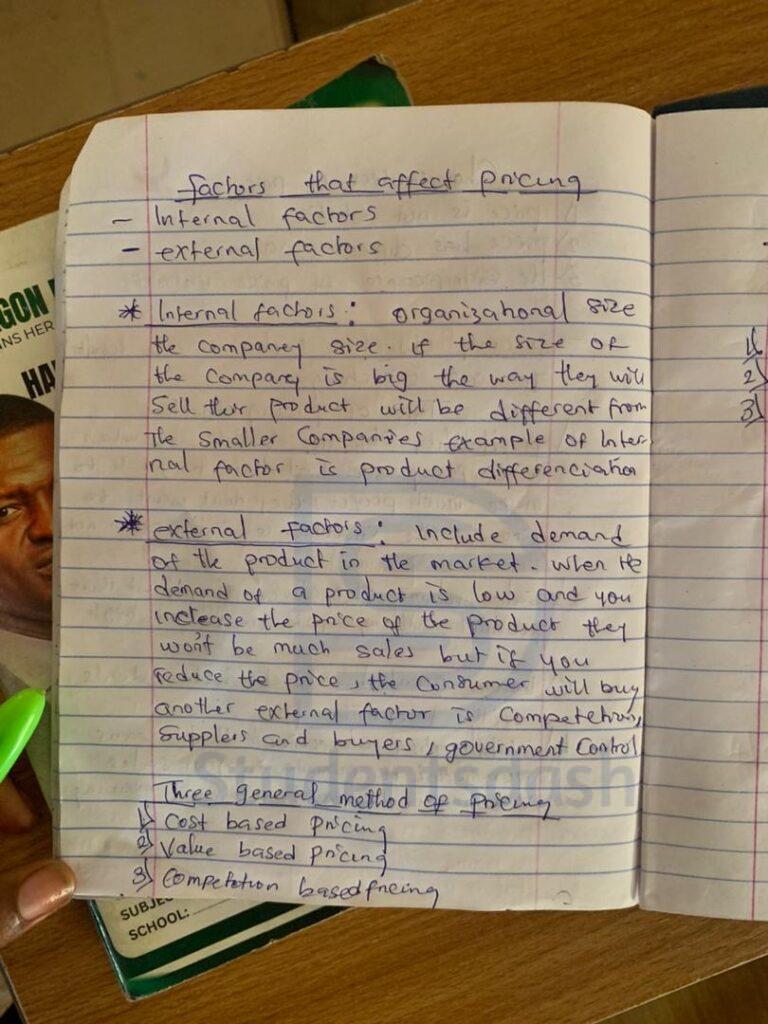 factors that affect pricing
- Internal factors
- external factors
* Internal factors: organizational size
the companey size. if the size of
the company is big the way they will
Sell their product will be different from
the smaller Companies example of Inter
nal factor is product differenciation
* external factors: include demand
of the product in the market. when the
demand of a product is low and you
increase the price of the product they
won't be much sales but if you
reduce the price, the consumer will buy
another external factor is Competetion,
Supplers and buyers, government Control
Three general method of pricing
1) Cost based pricing
2) Value based pricing
3) Competetion based pricing
Studentsdash
GON
NS HER
HA
SUBJE
SCHOOL:
1)
2)
3)